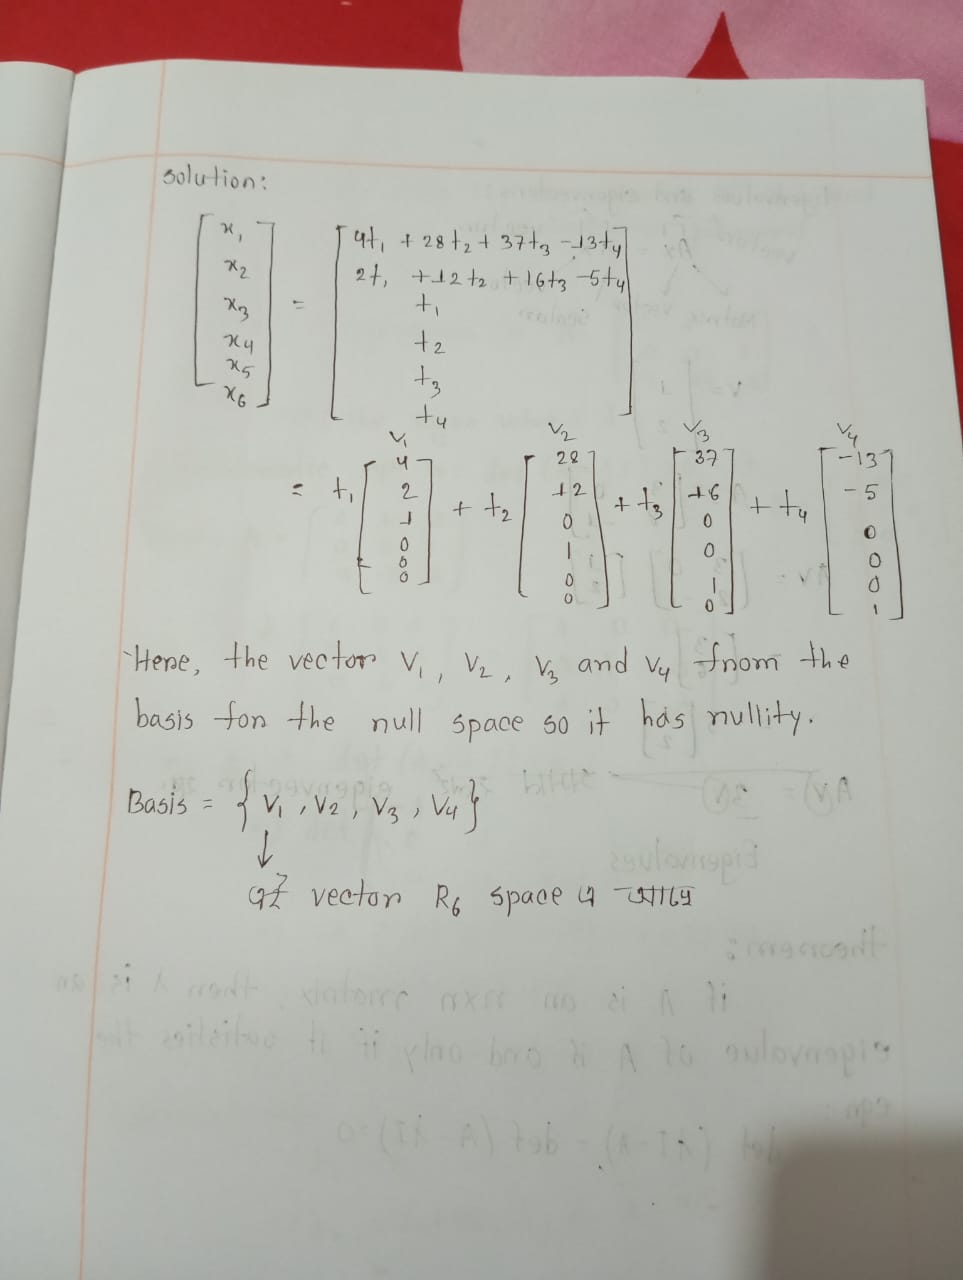 solution:
[x₁ x₂ x₃ x₄ x₅ x₆] = [4t₁ + 28t₂ + 37t₃ - 13t₄
2t₁ + 12t₂ + 16t₃ - 5t₄
t₁
t₂
t₃
t₄]
v₁ v₂ v₃ v₄
= t₁ [4 2 1 0 0 0] + t₂ [28 12 0 1 0 0] + t₃ [37 16 0 0 1 0] + t₄ [-13 -5 0 0 0 1]
Here, the vector v₁, v₂, v₃ and v₄ from the
basis for the null space so it has nullity.
Basis = { v₁, v₂, v₃, v₄ }
↓
এই vector R₆ space এ আছে